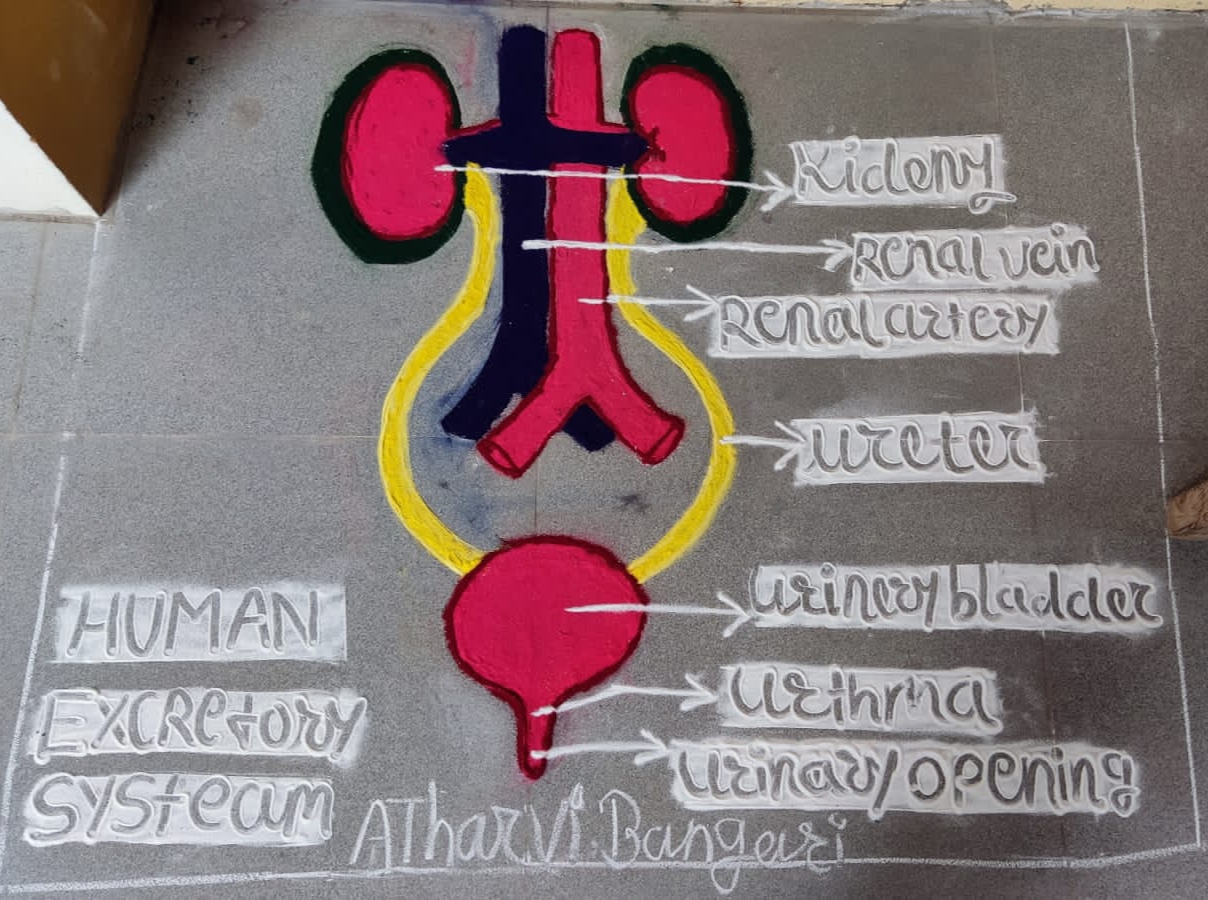 Kideny
Renal vein
Renal artery
ureter
urinery bladder
urethrna
urinary opening
HUMAN
EXCRETORY
SYSTEAM
ATharvi. Bangari